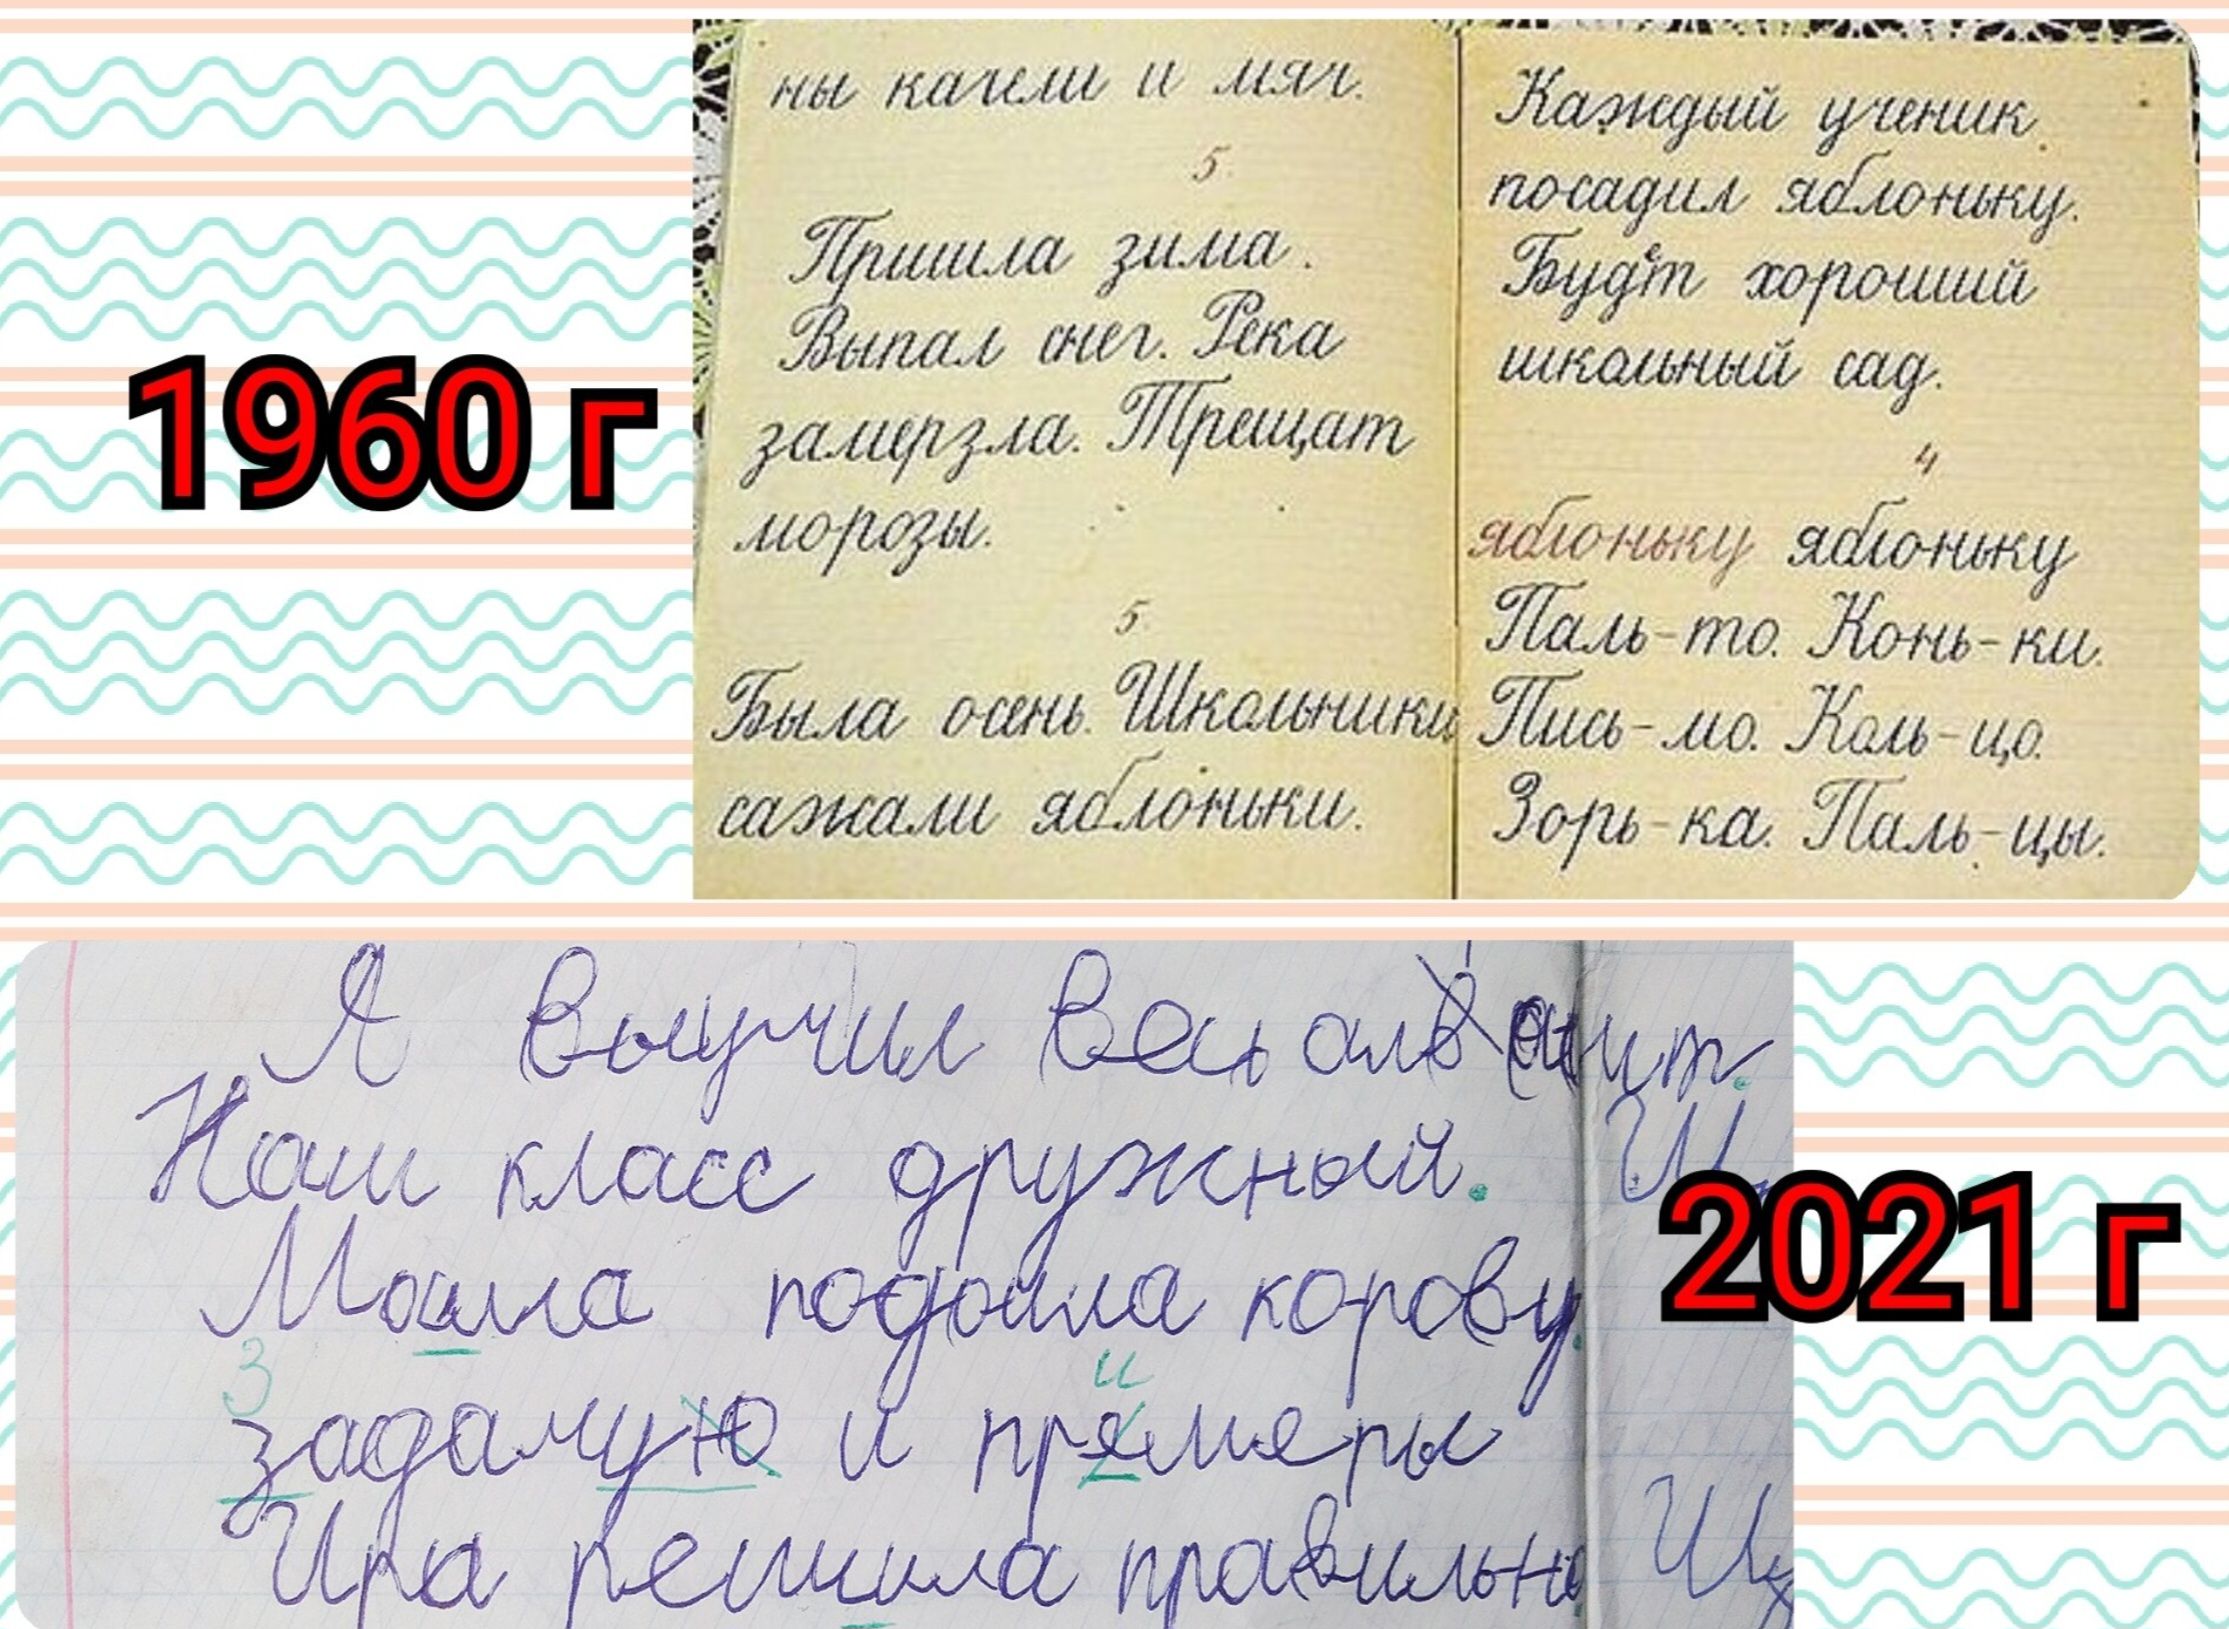 1960 г
ны качели и мяч.
5
Пришла зима.
Выпал снег. Река
замерзла. Трещат
морозы.
5
Была осень. Школьники
сажали яблоньки.
Каждый ученик
посадил яблоньку.
Будет хороший
школьный сад.
4
яблоньку яблоньку
Паль-то. Конь-ки.
Пись-мо. Коль-цо.
Зорь-ка. Паль-цы.
Я выучил весь
Наш класс дружный.
подоила корову.
З и
задамую и премеры
Ира решила правильно
2021 г